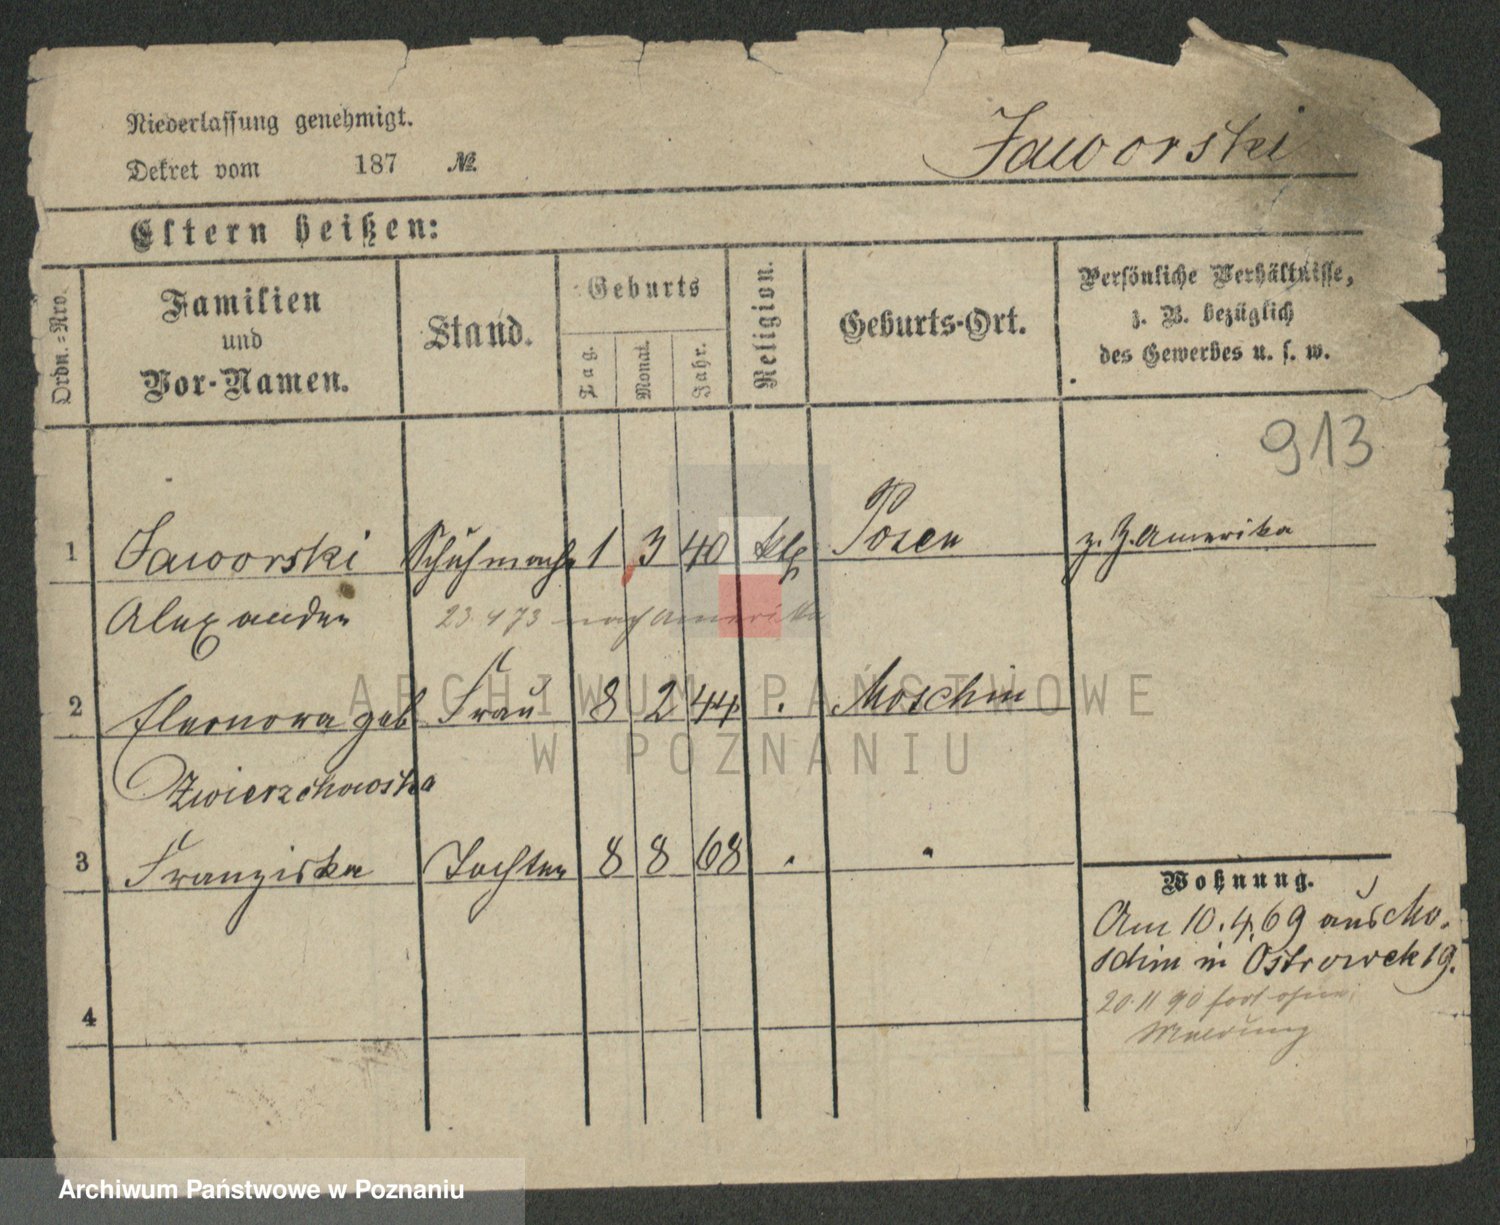 Niederlassung genehmigt.
Dekret vom 187 №
Jaworski
Eltern heißen:
Ordn.=Nro.
Familien
und
Vor-Namen.
Stand.
Geburts
Tag.
Monat.
Jahr.
Religion.
Geburts-Ort.
Persönliche Verhältnisse,
z. B. bezüglich
des Gewerbes u. s. w.
913
1 Jaworski Schuhmach 1 3 40 kth Posen z. Z. Amerika
Alexander 23 4 73 nach Amerika
2 Eleonora geb Frau 8 2 44 . Moschin
Zwierzchowska
3 Franziska Tochter 8 8 68 . .
Wohnung.
Am 10.4.69 aus Mo-
schin in Ostrowek 19.
20 11 90 fort ohne
Meldung
4
ARCHIWUM PAŃSTWOWE
W POZNANIU
Archiwum Państwowe w Poznaniu